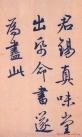 君錫真味堂
出承命書遂
為盡此